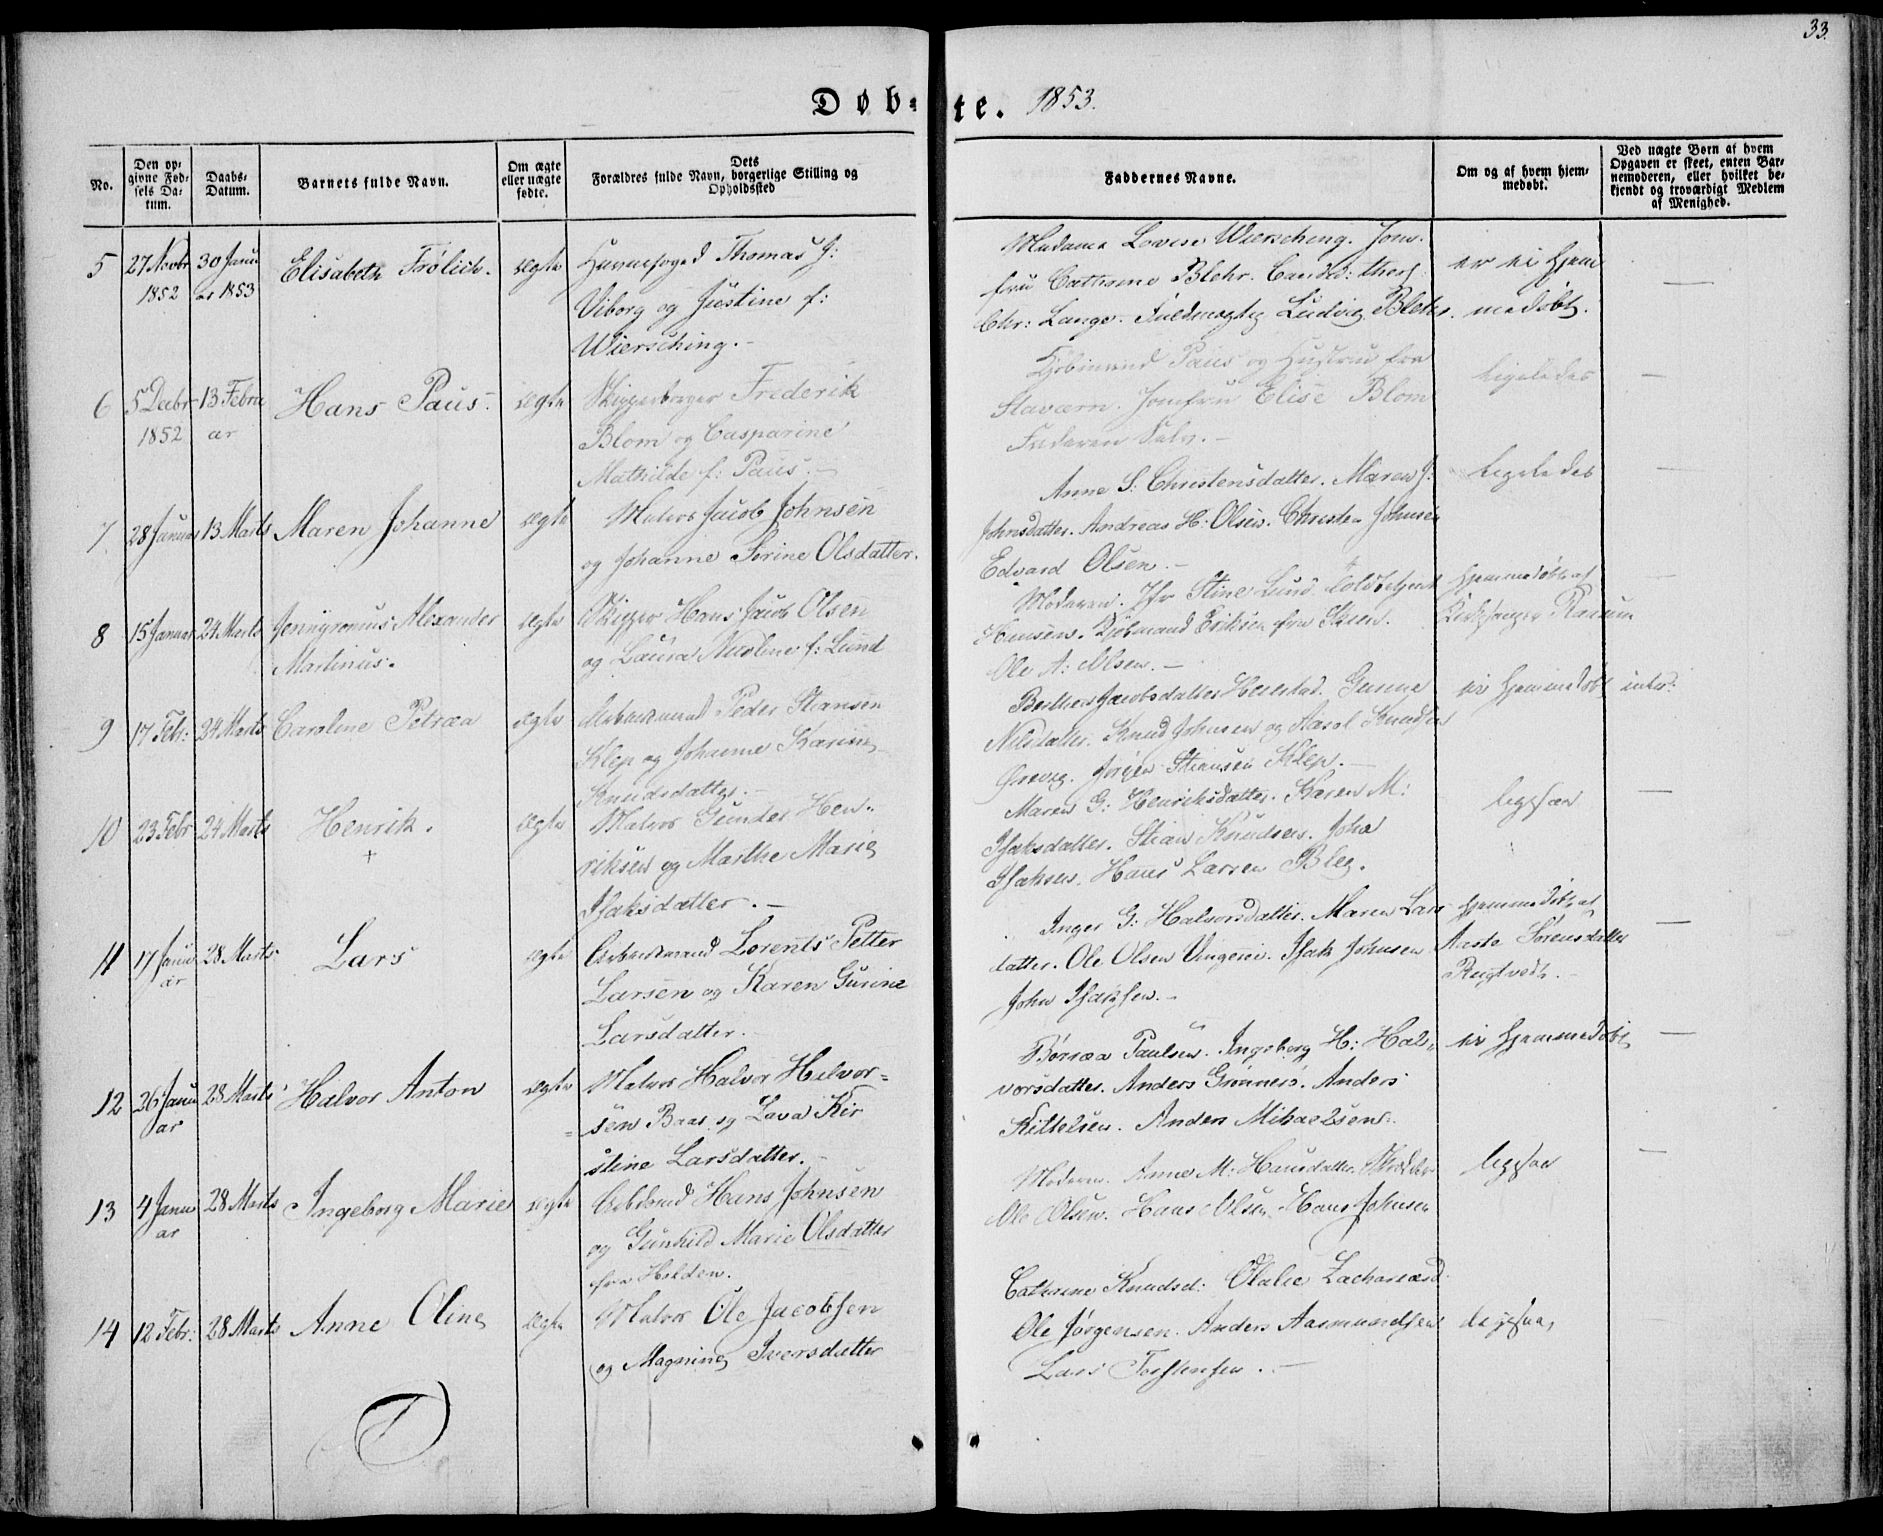 33.
Døb-te. 1853.
No.
Den op-
givne Fød-
sels Da-
tum.
Daabs-
Datum.
Barnets fulde Navn.
Om ægte
eller uægte
fødte.
Dets
Forældres fulde Navn, borgerlige Stilling og
Opholdssted
Faddernes Navne.
Om og af hvem hjem-
medøbt.
Ved uægte Børn af hvem
Opgaven er skeet, enten Bar-
nemoderen, eller hvilket be-
kjendt og troværdigt Medlem
af Menighed.
5
27 Novbr
1852
30 Janu
ar 1853
Elisabeth Frølich.
ægte
Thomas J:
Viborg og Justine f:
Wiersching.
Madame Lovise Wiersching. Jom-
fru Cathrine Blehr. Candid: theol:
Chr: Lange. Fuldmægtig Ludvig Blehr.
er ei hjem
medøbt.
6
5 Decbr
1852
13 Febru
ar
Hans Paus.
ægte
Skipperborger Frederik
Blom og Casparine
Mathilde f: Paus.
Kjøbmand Paus og Hustrue fra
Staværn. Jomfru Elise Blom
Faderen Selv.
ligeledes
7.
28 Januar
13 Marts
Maren Johanne
ægte
Matros Jacob Johnsen
og Johanne Sørine Olsdatter.
Anne S: Christensdatter. Maren J:
Johnsdatter. Andreas H. Olsen. Christen Johnsen
Edvard Olsen.
ligeledes
8
15 Januar
24 Marts
Jennyromus Alexander
Martinus.
ægte
Skipper Hans Jacob Olsen
og Laura Nicoline f: Lund
Moderen. Jfr Stine Lund. Toldbetjent
Hansen. Kjøbmand Eriksen fra Skien.
Ole A: Olsen.
hjemmedøbt af
Kirkesanger
9
17 Febr:
24 Marts
Caroline Petræa
ægte
Arbeidsmand Peder Stiansen
Klep og Johanne Karine
Knudsdatter.
Berthe Jacobsdatter Gunne
Nilsdatter. Knud Johnsen og Aasol Knudsen
Grevg. Jørgen Stiansen Klep.
ei hjemmedøbt
10
23 Febr
24 Marts
Henrik.
+
ægte
Matros Gunder Hen-
riksen og Marthe Marie
Isaksdatter.
Maren G: Henriksdatter. Karen M:
Isaksdatter. Stian Knudsen. John
Isaksen. Hans Larsen Bleg.
ligesaa
11
17 Janu
ar
28 Marts
Lars
ægte
Arbeidsmand Lorents Petter
Larsen og Karen Gurine
Larsdatter.
Inger G: Halvorsdatter. Maren Lars
datter. Ole Olsen Isak Johnsen
John Isaksen.
hjemmedøbt af
Aaste Sørensdatter
Rugtvedt.
12
26 Janu
ar
28 Marts
Halvor Anton
ægte
Matros Halvor Halvor-
sen Baas og Lava Kir
stine Larsdatter.
Børræa Paulsen. Ingeborg H: Hal-
vorsdatter. Anders Grønnerø. Anders
Kittelsen. Anders Mikaelsen.
ei hjemmedøbt
13
4 Janu
ar
28 Marts
Ingeborg Marie
ægte
Arbdsmd Hans Johnsen
og Gunhild Marie Olsdatter
fra Holden.
Moderen. Anne M. Hansdatter.
Ole Olsen. Hans Olsen. Hans Johnsen
ligesaa
14
12 Febr:
28 Marts
Anne Oline
ægte
Matros Ole Jacobsen
og Magnine Iversdatter
Cathrine Knudsd: Olalie Zachariasd:
Ole Jørgensen. Anders Aasmundsen
Lars Torstensen.